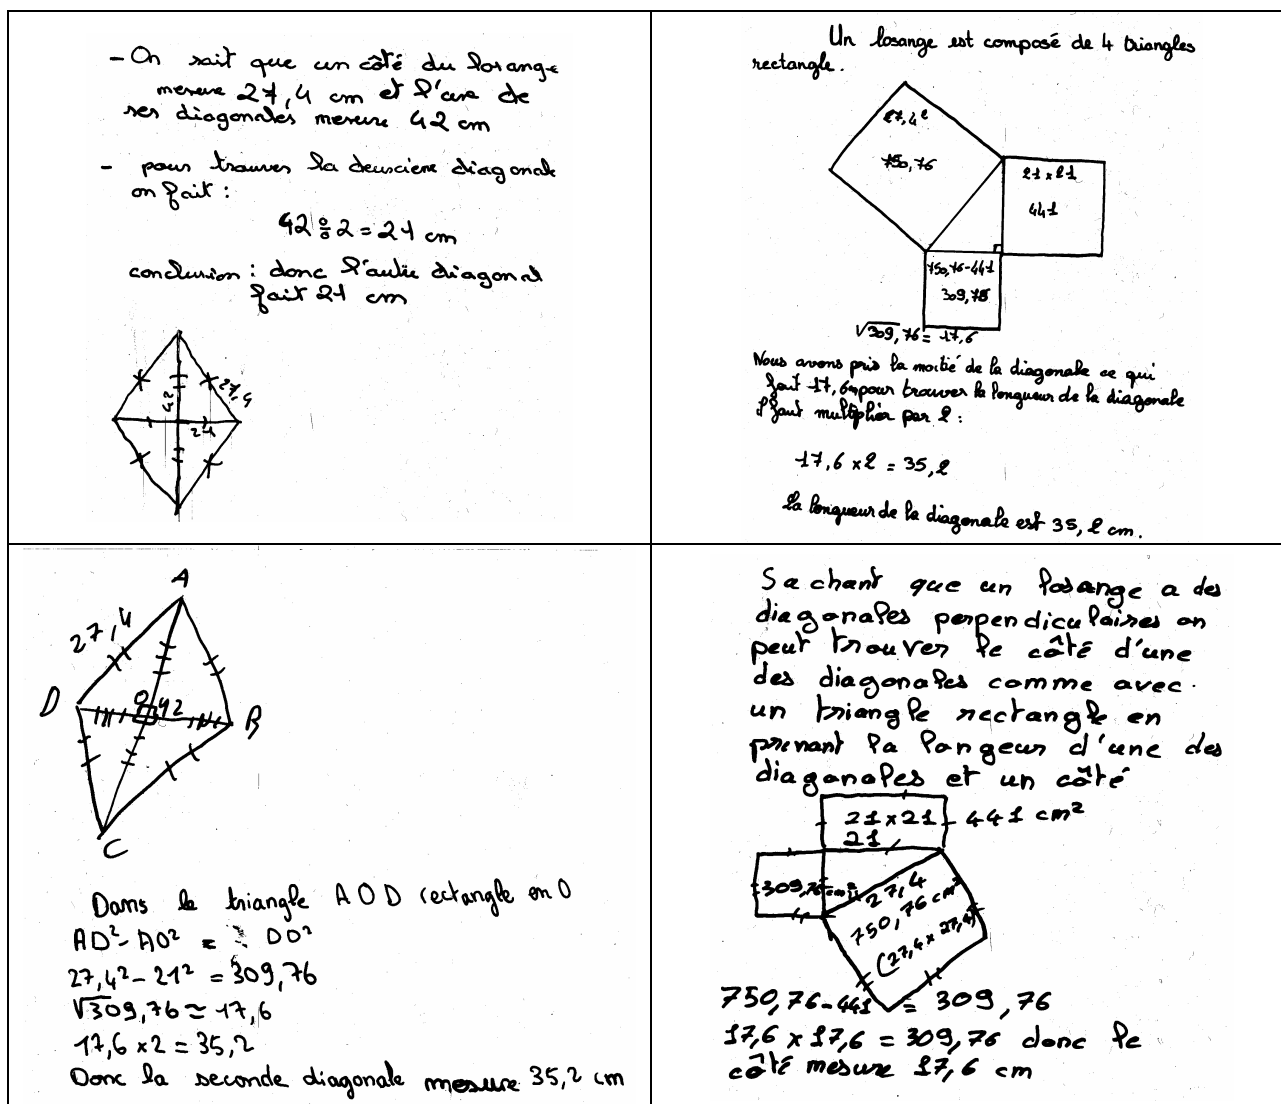 - On sait que un côté du losange
mesure 27,4 cm et l'une de
ses diagonales mesure 42 cm
- pour trouver la deuxcième diagonale
on fait :
42 ÷ 2 = 21 cm
conclusion : donc l'autre diagonal
fait 21 cm
27,4
42
21
Un losange est composé de 4 triangles
rectangle.
27,4²
750,76
21 x 21
441
750,76-441
309,76
√309,76 = 17,6
Nous avons pris la moitié de la diagonale ce qui
fait 17,6 pour trouver la longueur de la diagonale
il faut multiplier par 2 :
17,6 x 2 = 35,2
La longueur de la diagonale est 35,2 cm.
A
27,4
D
O
42
B
C
Dans le triangle AOD rectangle en O
AD² - AO² = DO²
27,4² - 21² = 309,76
√309,76 ≈ 17,6
17,6 x 2 = 35,2
Donc la seconde diagonale mesure 35,2 cm
Sachant que un losange a des
diagonales perpendiculaires on
peut trouver le côté d'une
des diagonales comme avec
un triangle rectangle en
prenant la longeur d'une des
diagonales et un côté
21 x 21
441 cm²
21
309,76 cm²
27,4
750,76 cm²
(27,4 x 27,4)
750,76 - 441 = 309,76
17,6 x 17,6 = 309,76 donc le
côté mesure 17,6 cm